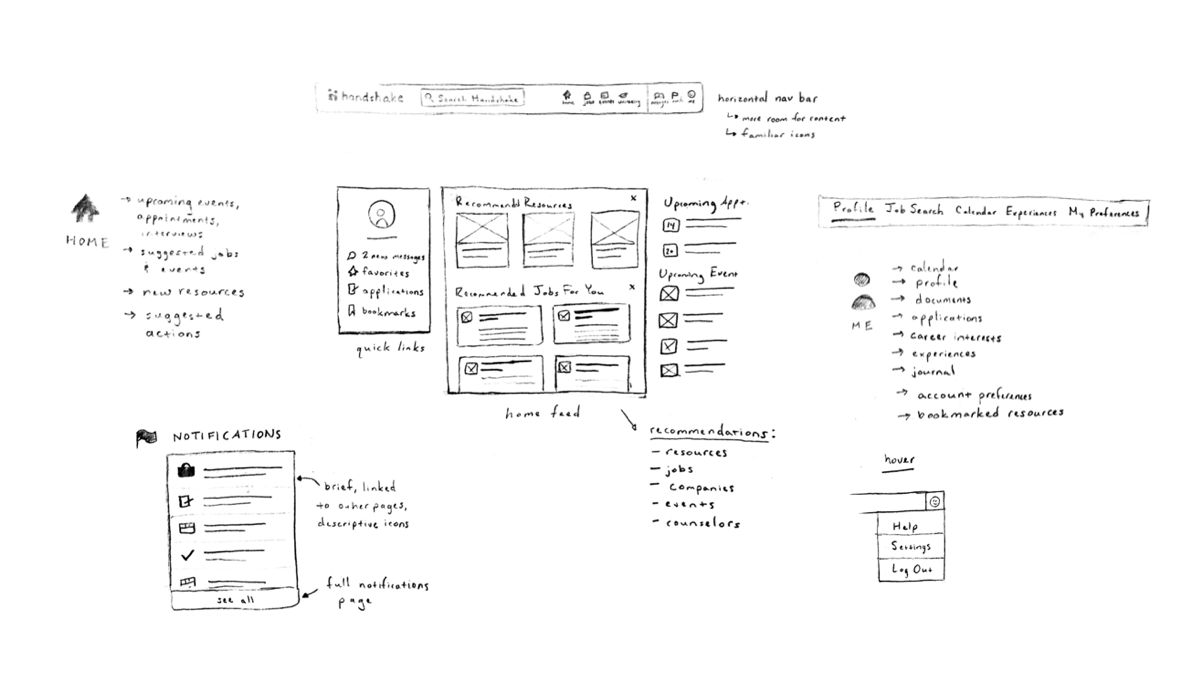 handshake
Search Handshake
home jobs events
me
horizontal nav bar
↳ more room for content
↳ familiar icons
HOME
→ upcoming events,
appointments,
interviews
→ suggested jobs
& events
→ new resources
→ suggested
actions
2 new messages
favorites
applications
bookmarks
quick links
Recommended Resources x
Recommended Jobs For You x
home feed
Upcoming Appt.
14
20
Upcoming Event
recommendations:
- resources
- jobs
- companies
- events
- counselors
Profile Job Search Calendar Experiences My Preferences
ME
→ calendar
→ profile
→ documents
→ applications
→ career interests
→ experiences
→ journal
→ account preferences
→ bookmarked resources
hover
Help
Settings
Log Out
NOTIFICATIONS
see all
brief, linked
to other pages,
descriptive icons
full notifications
page